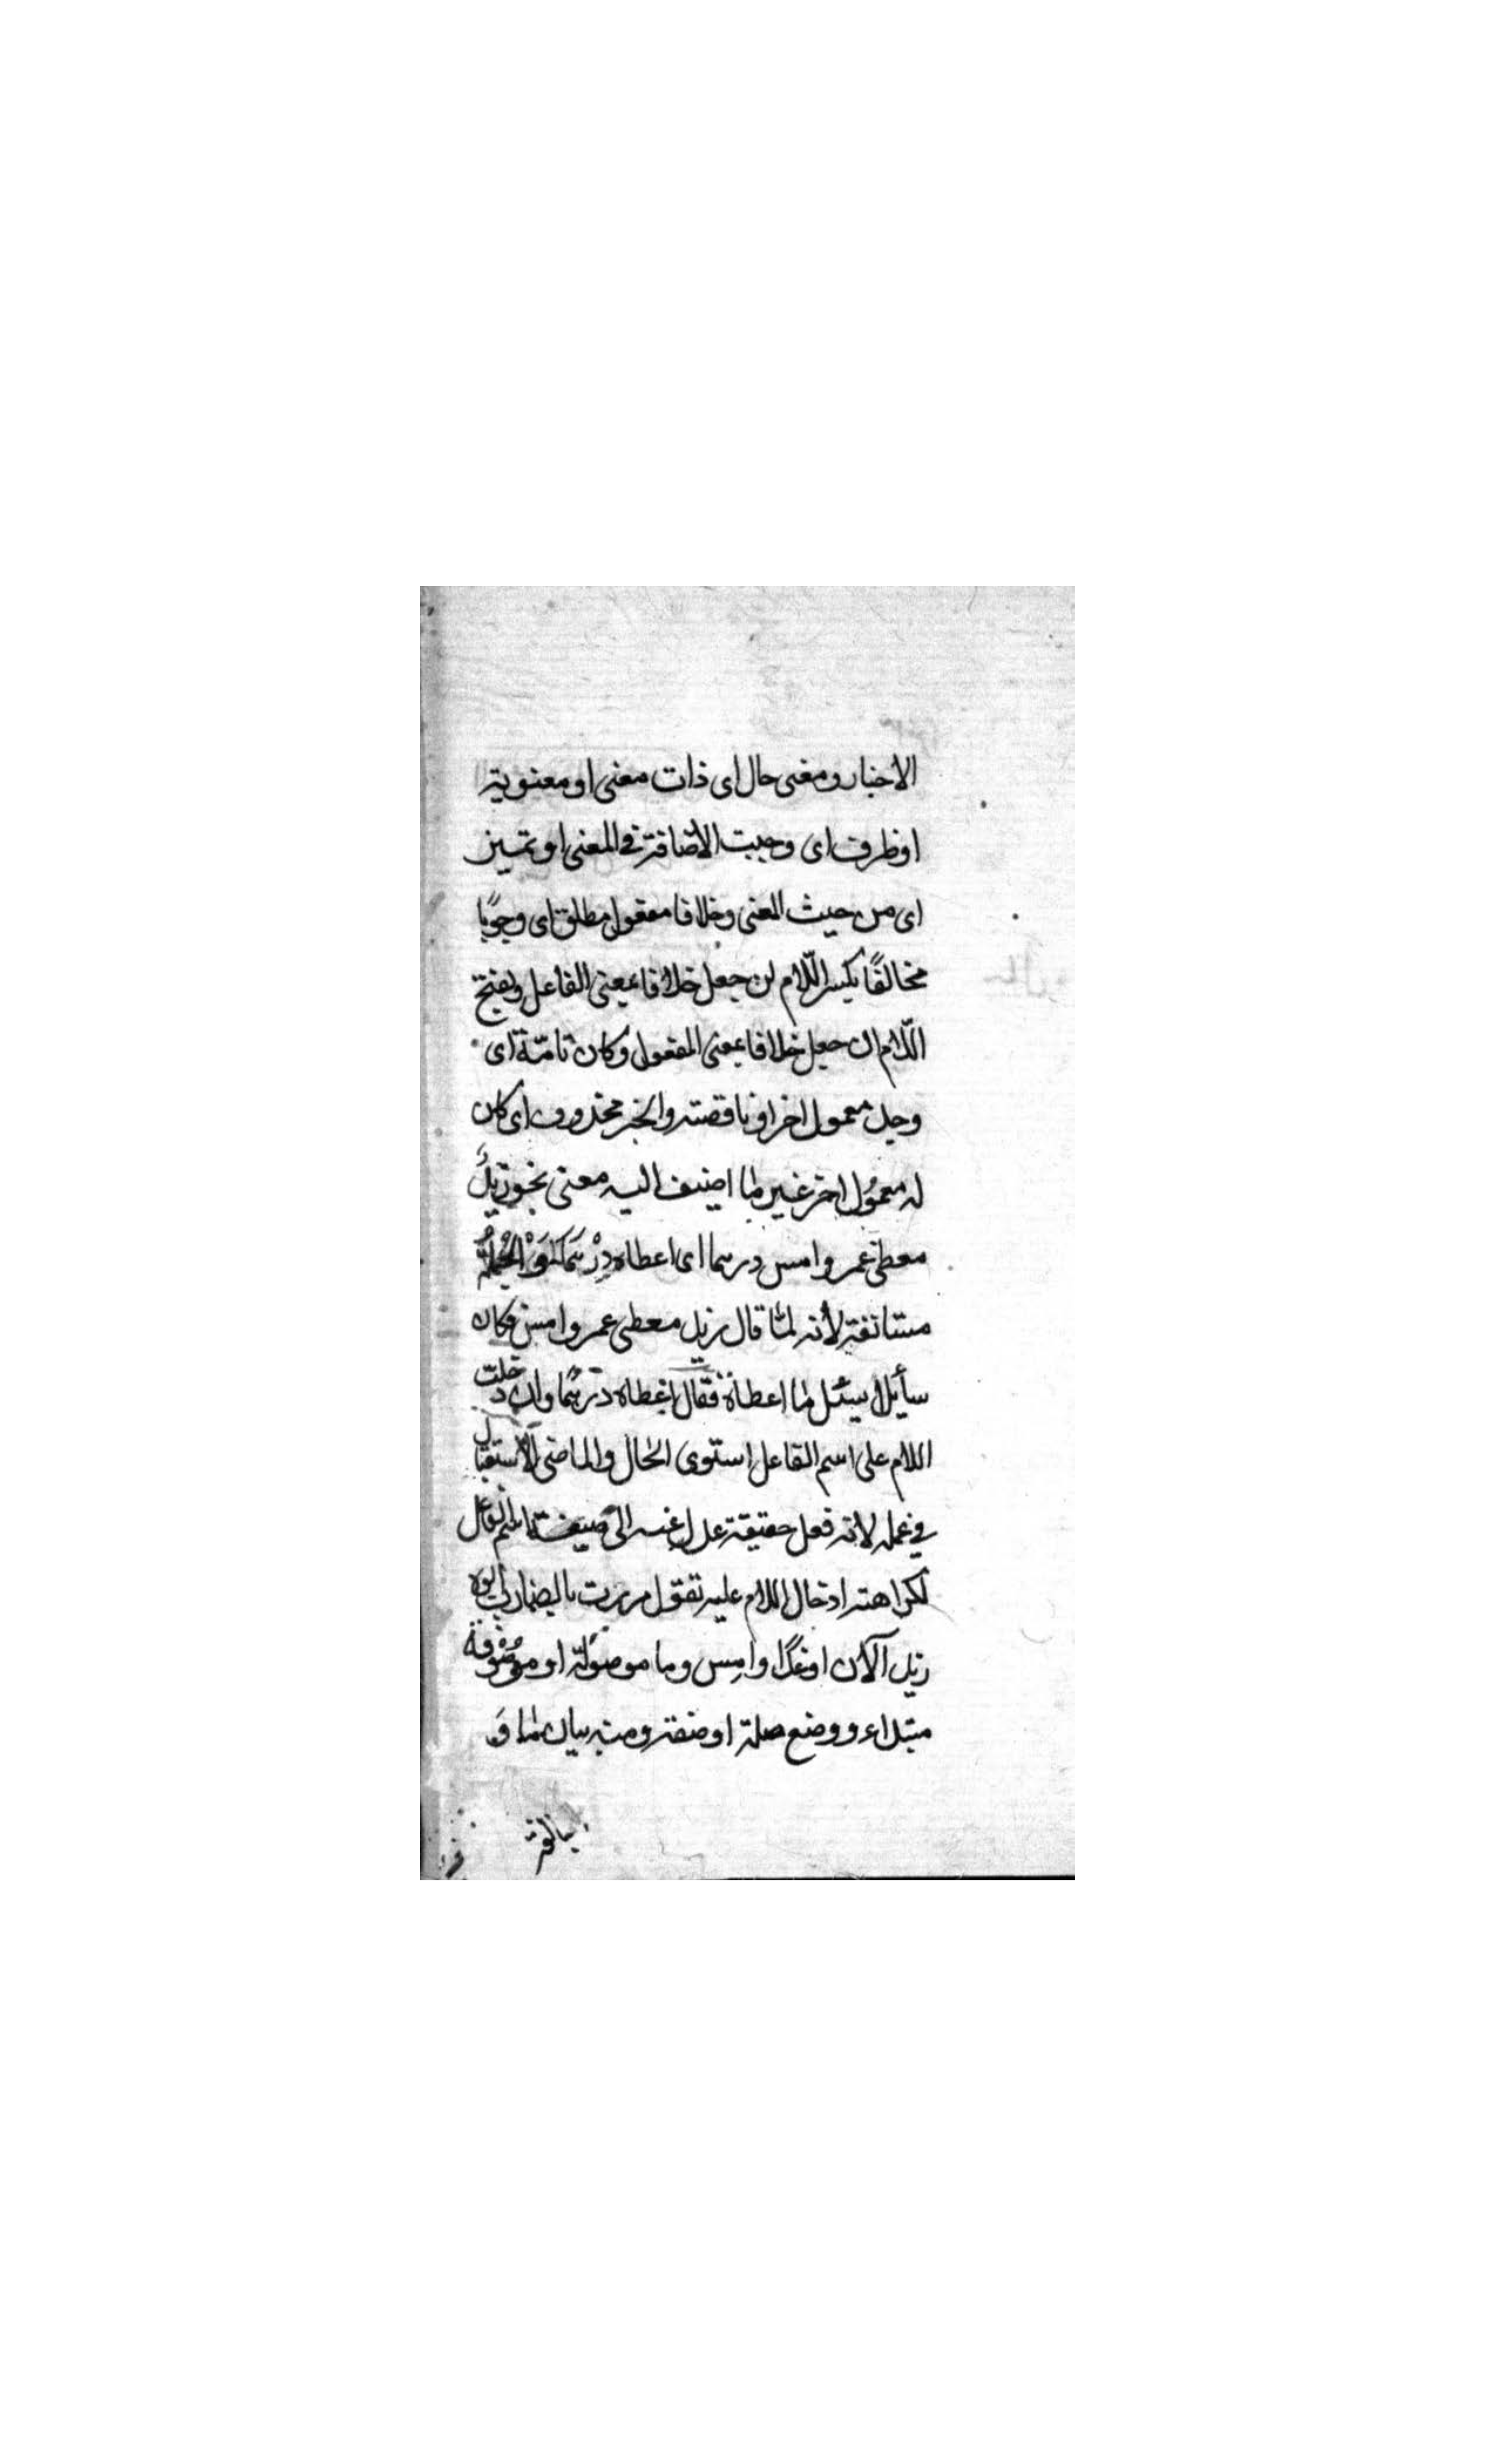 الاخبار ومعنى حال اى ذات معنى او معنوية
او ظرف اى وجبت الاضافة فى المعنى او تميز
اى من حيث المعنى وخلافا مفعول مطلق اى وجوبًا
مخالفًا بكسر اللّام ان جعل خلافا بمعنى الفاعل وبفتح
اللّام ان جعل خلافا بمعنى المفعول وكان تامّة اى
وجد معمول اخر او ناقصته والخبر محذوف اى كان
له معمُول اخر غير ما اضيف اليه معنى نحو زيدٌ
معطى عمرو امس درهما اى اعطاه دِرْهَمًا وَالْجُمْلَةُ
مستانفة لأنه لمّا قال زيد معطى عمرو امس فكان
سأيلا سئل ما اعطاه فقال اعطاه درهمًا وان دخلت
اللام على اسم الفاعل استوى الحال والماضى الاستقبال
في عمله لانه فعل حقيقة عدل عنه الى صيغة اسم الفاعل
لكراهته ادخال اللام عليه تقول مررت بالضارب ابوه
زيد آلآن او غدًا وامِس وما موصُولة او موْصُوْفة
مبتداء ووضع صلة او صفة ومنه بيان لما وَ